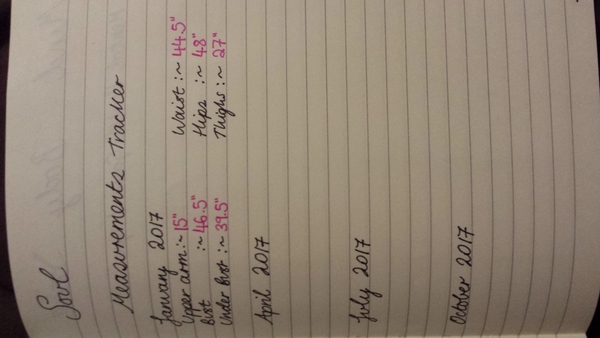 Soul
Measurements Tracker
January 2017
Upper arm :~ 15" Waist :~ 44.5"
Bust :~ 46.5" Hips :~ 48"
Under Bust :~ 39.5" Thighs :~ 27"
April 2017
July 2017
October 2017